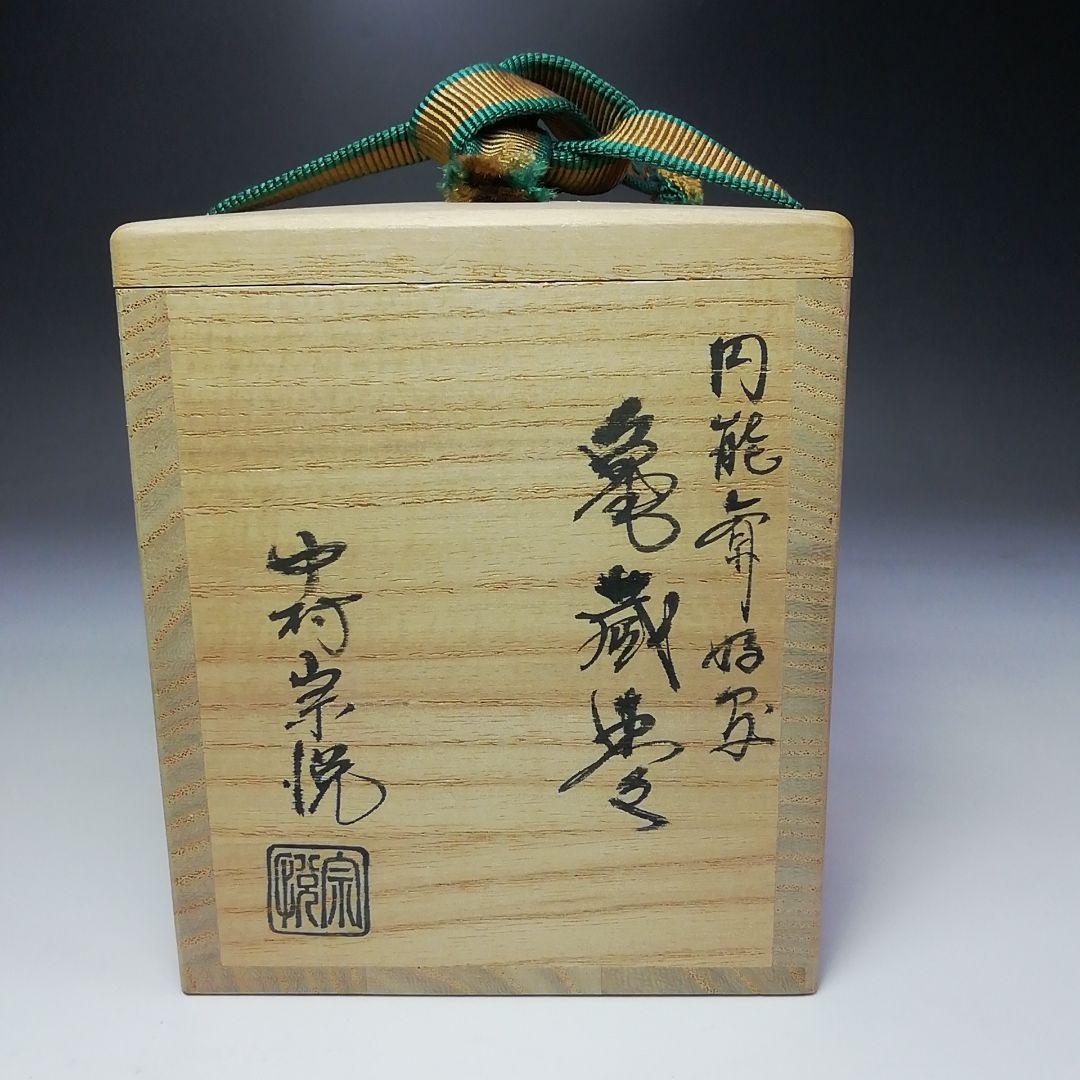 円能斎好写
亀蔵棗
中村宗悦
宗悦